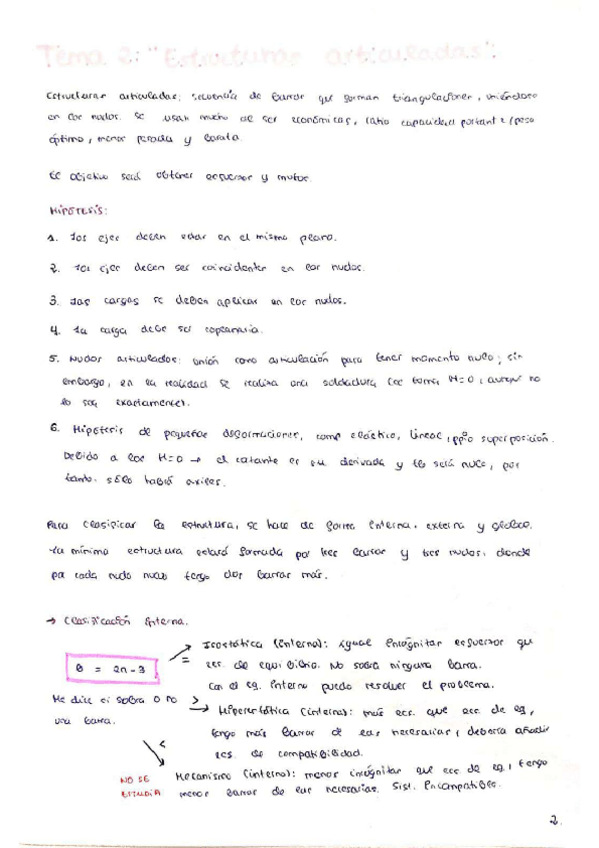 Tema 2: "Estructuras articuladas":
Estructuras articuladas: secuencia de barras que forman triangulaciones, uniéndose
en los nudos. Se usan mucho al ser económicas, ratio capacidad portante/peso
óptimo, menor pesada y barata.
El objetivo será obtener esfuerzos y
HIPÓTESIS:
1. Los ejes deben estar en el mismo plano.
2. Los ejes deben ser coincidentes en los nudos.
3. Las cargas se deben aplicar en los nudos.
4. La carga debe ser coplanaria.
5. Nudos articulados: unión como articulación para tener momento nulo; sin
embargo, en la realidad se realiza una soldadura (se toma M=0, aunque no
lo sea exactamente).
6. Hipótesis de pequeñas deformaciones, comp elástico, lineal, ppio superposición.
Debido a los M=0 → el cortante es su derivada y tb será nulo, por
tanto. sólo habrá axiles.
Para clasificar la estructura, se hace de forma interna, externa y global.
La mínima estructura estará formada por tres barras y tres nudos, donde
por cada nudo nuevo tengo dos barras más.
→ Clasificación interna.
b = 2n-3
Me dice si sobra o no
una barra.
= Isostática (interna): igual incógnitas esfuerzos que
ecs. de equilibrio. No sobra ninguna barra.
Con el eq. interno puedo resolver el problema.
> Hiperestática (interna): más ecs. que ecs. de eq,
tengo más barras de las necesarias, debería añadir
ecs. de compatibilidad.
< Mecanismo (interno): menos incógnitas que ecs. de eq, tengo
menos barras de las necesarias. Sist. Incompatibles.
NO SE
ESTUDIA
2